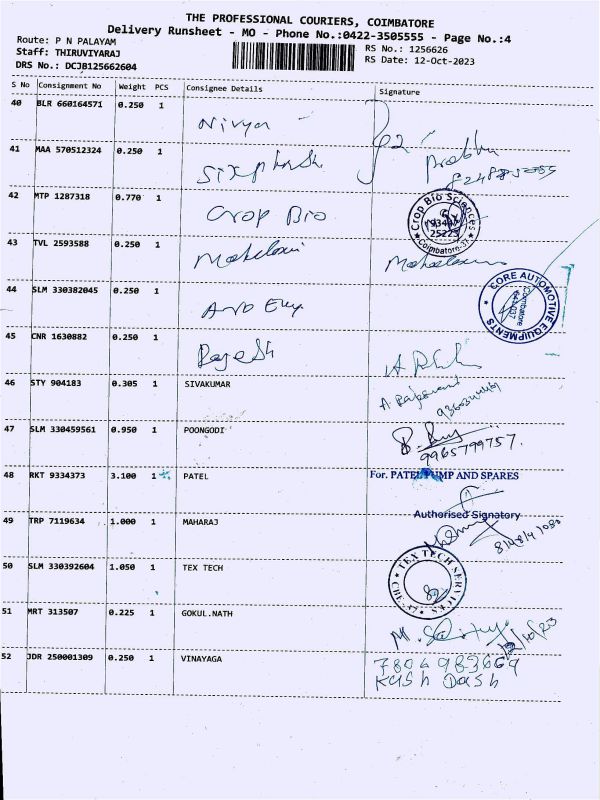 THE PROFESSIONAL COURIERS, COIMBATORE
Delivery Runsheet - MO - Phone No.:0422-3505555 - Page No.:4
Route: P N PALAYAM
Staff: THIRUVIYARAJ
DRS No.: DCJB125662604
RS No.: 1256626
RS Date: 12-Oct-2023
S No Consignment No Weight PCS Consignee Details Signature
40 BLR 660164571 0.250 1 Nivya
41 MAA 570512324 0.250 1 Prabhu
42 MTP 1287318 0.770 1 Crop Bio
Crop Bio Sciences
25223
Coimbatore-37
43 TVL 2593588 0.250 1
44 SLM 330382045 0.250 1
CORE AUTOMOTIVE EQUIPMENTS
Coimbatore
641 037
45 CNR 1630882 0.250 1 Rajesh
46 STY 904183 0.305 1 SIVAKUMAR
47 SLM 330459561 0.950 1 POONGODI
9965799757.
48 RKT 9334373 3.100 1 PATEL For. PATEL PUMP AND SPARES
Authorised Signatory
49 TRP 7119634 1.000 1 MAHARAJ
50 SLM 330392604 1.050 1 TEX TECH
TEX TECH SERVICES
51 MRT 313507 0.225 1 GOKUL.NATH
52 JDR 250001309 0.250 1 VINAYAGA
7804983669
Kush Dash